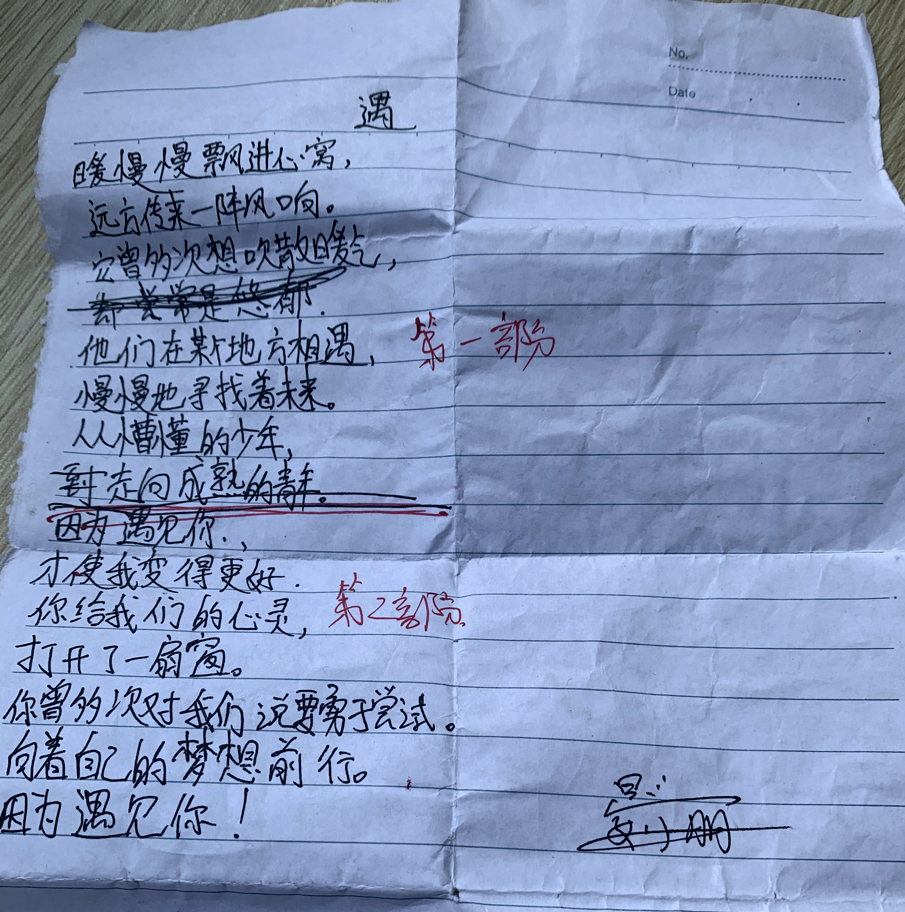 No.
Date
遇
暖慢慢飘进心窝，
远方传来一阵风响。
它曾多次想吹散暖气，
他们在某个地方相遇，
第一部分
慢慢地寻找着未来。
从懵懂的少年，
到走向成熟的青年。
因为遇见你，
才使我变得更好.
你给我们的心灵，
第二部分
打开了一扇窗。
你曾多次对我们说要勇于尝试。
向着自己的梦想前行。
因为遇见你！